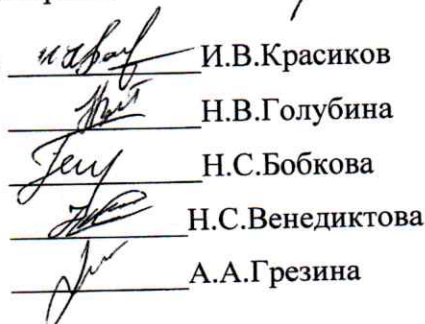 И.В.Красиков
Н.В.Голубина
Н.С.Бобкова
Н.С.Венедиктова
А.А.Грезина